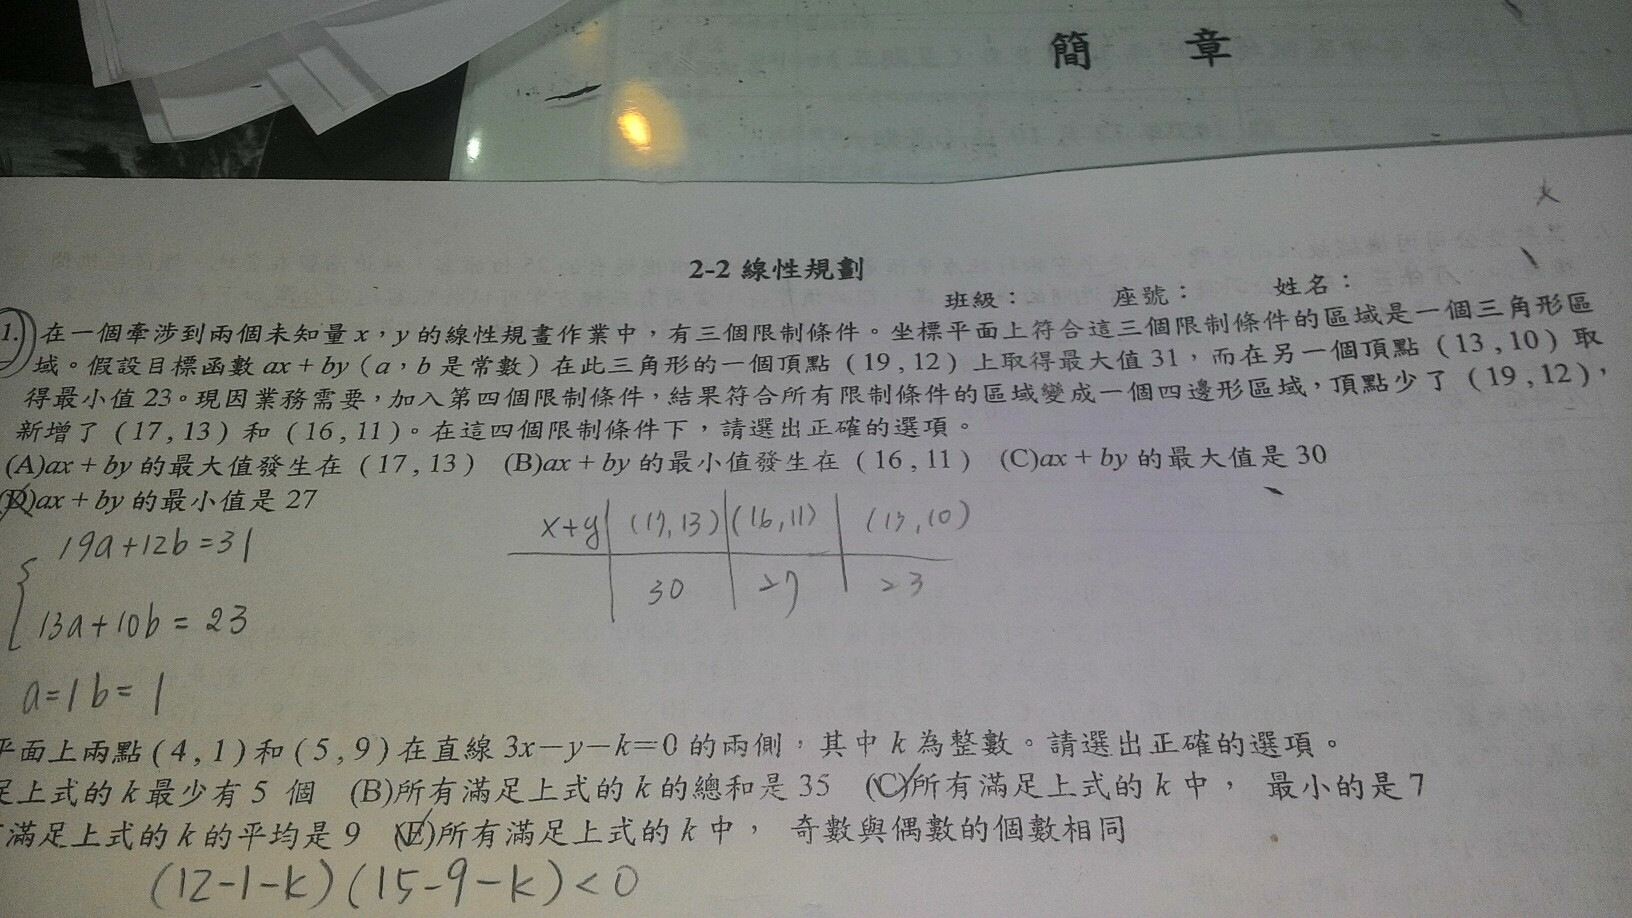 簡 章
2-2 線性規劃
班級： 座號： 姓名：
1. 在一個牽涉到兩個未知量 x，y 的線性規畫作業中，有三個限制條件。坐標平面上符合這三個限制條件的區域是一個三角形區
域。假設目標函數 ax + by ( a，b 是常數 ) 在此三角形的一個頂點 ( 19 , 12 ) 上取得最大值 31，而在另一個頂點 ( 13 , 10 ) 取
得最小值 23。現因業務需要，加入第四個限制條件，結果符合所有限制條件的區域變成一個四邊形區域，頂點少了 ( 19 , 12 )，
新增了 ( 17 , 13 ) 和 ( 16 , 11 )。在這四個限制條件下，請選出正確的選項。
(A)ax + by 的最大值發生在 ( 17 , 13 ) (B)ax + by 的最小值發生在 ( 16 , 11 ) (C)ax + by 的最大值是 30
(D)ax + by 的最小值是 27
x+y (17, 13) (16, 11) (13, 10)
30 27 23
19a+12b=31
13a+10b = 23
a=1 b= 1
平面上兩點 ( 4 , 1 ) 和 ( 5 , 9 ) 在直線 3x－y－k＝0 的兩側，其中 k 為整數。請選出正確的選項。
足上式的 k 最少有 5 個 (B)所有滿足上式的 k 的總和是 35 (C)所有滿足上式的 k 中， 最小的是 7
滿足上式的 k 的平均是 9 (E)所有滿足上式的 k 中， 奇數與偶數的個數相同
(12-1-k)(15-9-k)<0